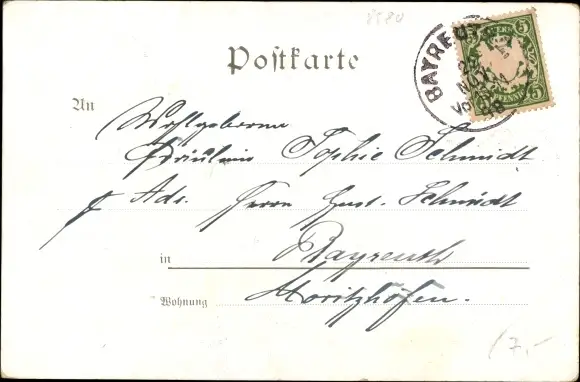 8580
Postkarte
BAYREUTH
BAYERN
5 5
29
NOV.
98
5 PFENNIG 5
An
Wohlgeborene
Fräulein Sophie Schmidt
p. Adr. Herrn Gust. Schmidt
in Bayreuth
Wohnung Moritzhöfen.
17,-